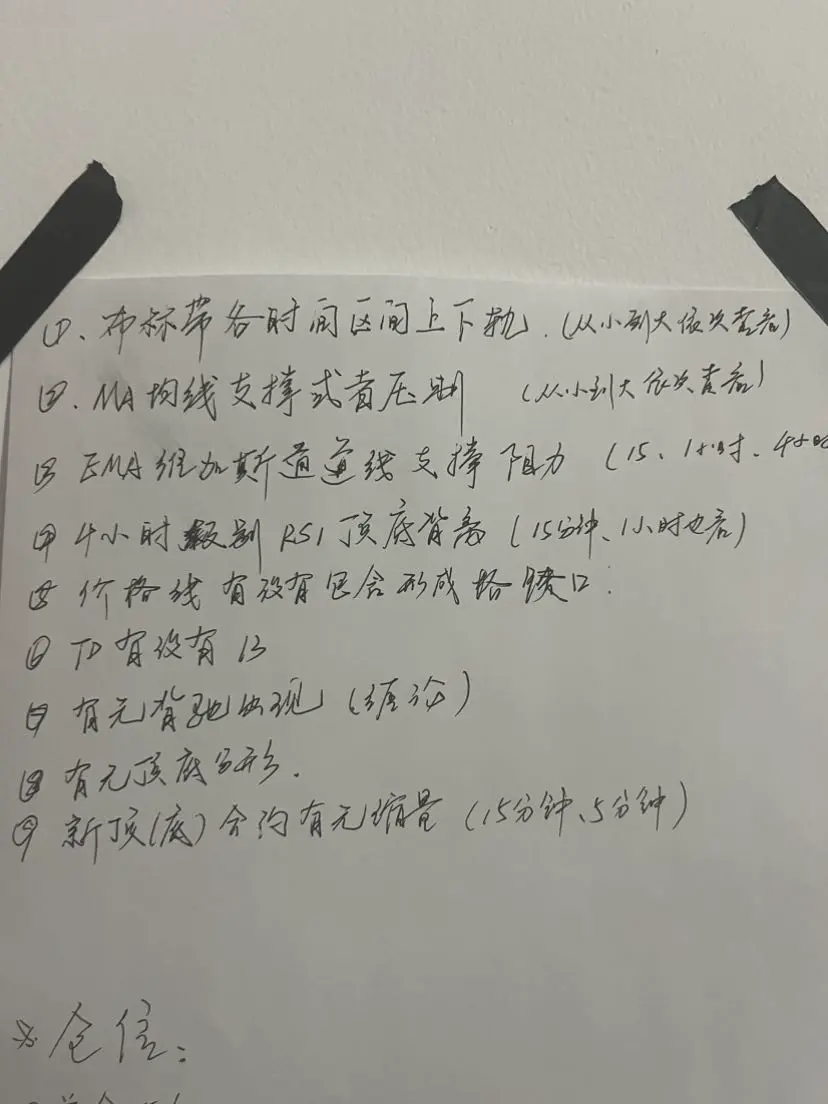 ①、布标带各时间区间上下轨.(从小到大依次查看)
②、MA均线支撑或者压制 (从小到大依次查看)
③ EMA维加斯通道线支撑阻力 (15、1小时、4小时
④ 4小时级别RSI顶底背离 (15分钟、1小时也看)
⑤ 价格线有没有包含形成 缺口.
⑥ TD有没有13
⑦ 有无背驰出现 (缠论)
⑧ 有无顶底分形.
⑨ 新顶(底)合约有无缩量 (15分钟、5分钟)
※仓位: